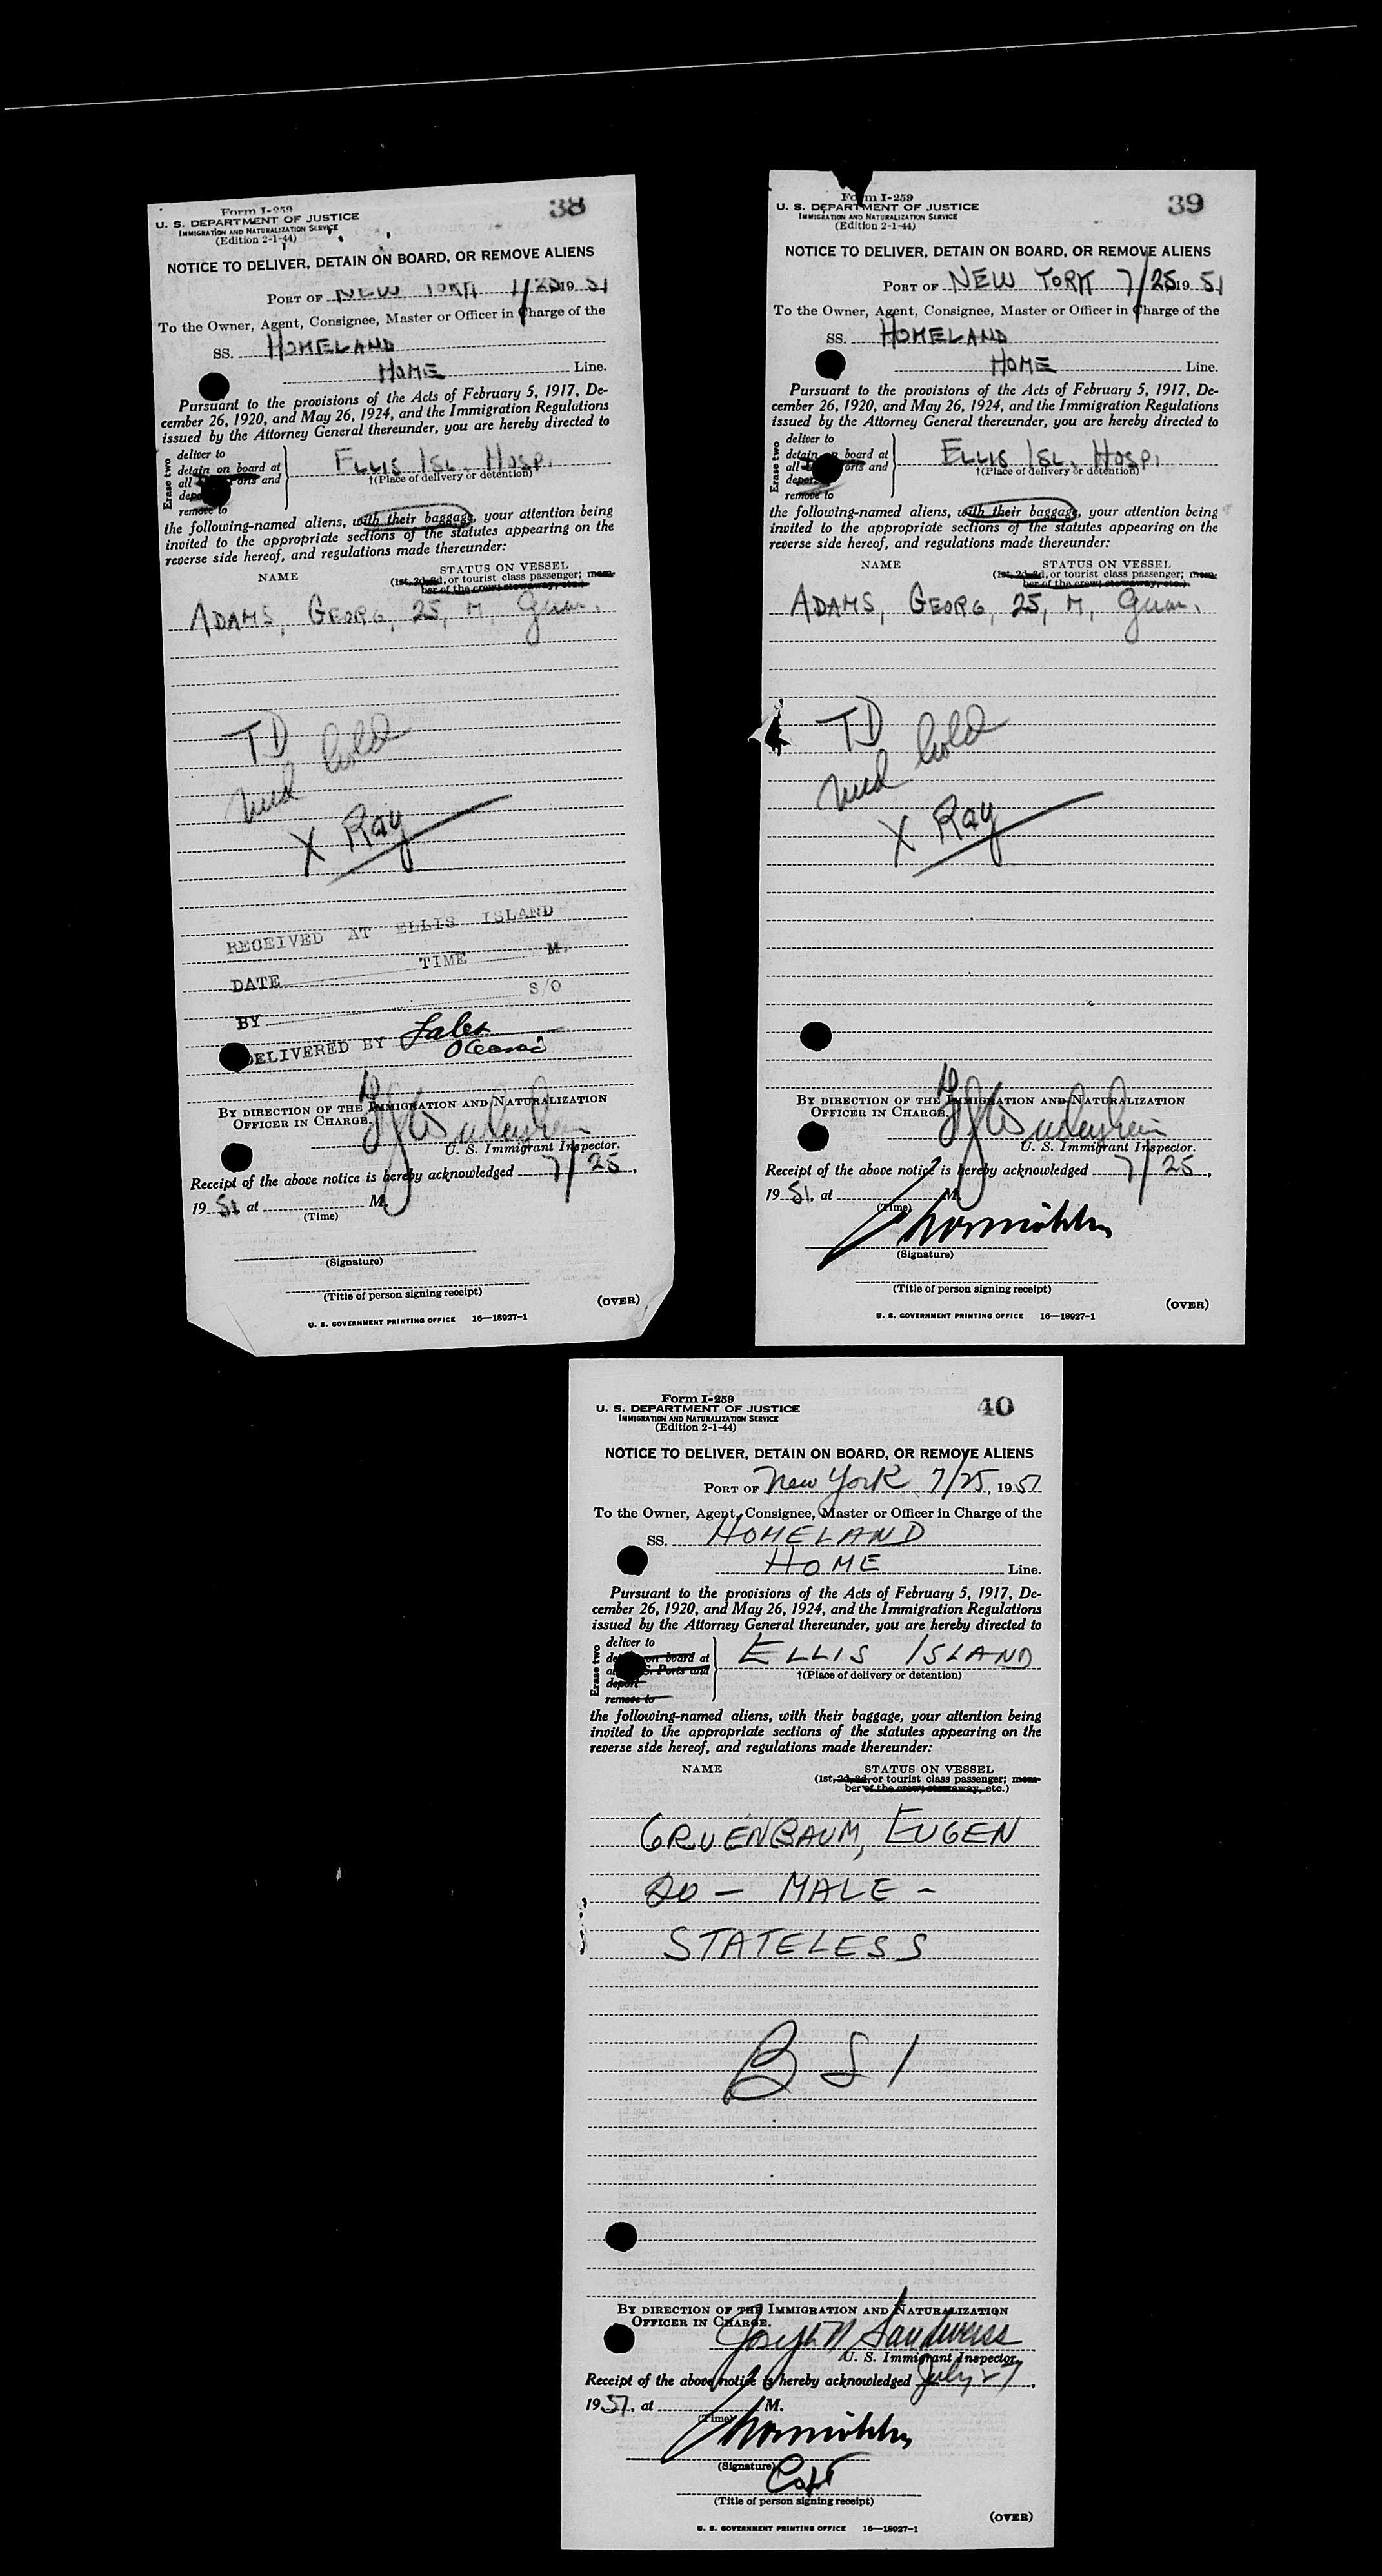 Form I-259
38
U. S. DEPARTMENT OF JUSTICE
IMMIGRATION AND NATURALIZATION SERVICE
(Edition 2-1-44)
NOTICE TO DELIVER, DETAIN ON BOARD, OR REMOVE ALIENS
PORT OF NEW YORK 7/25 19 51
To the Owner, Agent, Consignee, Master or Officer in Charge of the
SS. HOMELAND
HOME Line.
Pursuant to the provisions of the Acts of February 5, 1917, De-
cember 26, 1920, and May 26, 1924, and the Immigration Regulations
issued by the Attorney General thereunder, you are hereby directed to
Erase two
deliver to
detain on board at
all orts and
remove to
ELLIS ISL. HOSP.
†(Place of delivery or detention)
the following-named aliens, with their baggage, your attention being
invited to the appropriate sections of the statutes appearing on the
reverse side hereof, and regulations made thereunder:
NAME STATUS ON VESSEL
(1st, 2d, 3d, or tourist class passenger; mem-
ber of the crew; stowaway, etc.)
ADAMS, GEORG, 25, M, Germ.
TD
Med hold
X Ray
RECEIVED AT ELLIS ISLAND
DATE TIME M.
BY S/O
DELIVERED BY
BY DIRECTION OF THE IMMIGRATION AND NATURALIZATION
OFFICER IN CHARGE.
U. S. Immigrant Inspector.
Receipt of the above notice is hereby acknowledged 7/25,
19 51 at M.
(Time)
(Signature)
(Title of person signing receipt)
(OVER)
U. S. GOVERNMENT PRINTING OFFICE 16—18927-1
Form I-259
39
U. S. DEPARTMENT OF JUSTICE
IMMIGRATION AND NATURALIZATION SERVICE
(Edition 2-1-44)
NOTICE TO DELIVER, DETAIN ON BOARD, OR REMOVE ALIENS
PORT OF NEW YORK 7/25 19 51
To the Owner, Agent, Consignee, Master or Officer in Charge of the
SS. HOMELAND
HOME Line.
Pursuant to the provisions of the Acts of February 5, 1917, De-
cember 26, 1920, and May 26, 1924, and the Immigration Regulations
issued by the Attorney General thereunder, you are hereby directed to
Erase two
deliver to
detain on board at
all orts and
remove to
ELLIS ISL. HOSP.
†(Place of delivery or detention)
the following-named aliens, with their baggage, your attention being
invited to the appropriate sections of the statutes appearing on the
reverse side hereof, and regulations made thereunder:
NAME STATUS ON VESSEL
(1st, 2d, 3d, or tourist class passenger; mem-
ber of the crew; stowaway, etc.)
ADAMS, GEORG, 25, M, Germ.
TD
Med hold
X Ray
BY DIRECTION OF THE IMMIGRATION AND NATURALIZATION
OFFICER IN CHARGE.
U. S. Immigrant Inspector.
Receipt of the above notice is hereby acknowledged 7/25,
19 51, at M.
(Time)
(Signature)
(Title of person signing receipt)
(OVER)
U. S. GOVERNMENT PRINTING OFFICE 16—18927-1
Form I-259
40
U. S. DEPARTMENT OF JUSTICE
IMMIGRATION AND NATURALIZATION SERVICE
(Edition 2-1-44)
NOTICE TO DELIVER, DETAIN ON BOARD, OR REMOVE ALIENS
PORT OF New York 7/25, 19 51
To the Owner, Agent, Consignee, Master or Officer in Charge of the
SS. HOMELAND
HOME Line.
Pursuant to the provisions of the Acts of February 5, 1917, De-
cember 26, 1920, and May 26, 1924, and the Immigration Regulations
issued by the Attorney General thereunder, you are hereby directed to
Erase two
deliver to
on board at
S. Ports and
deport
remove to
ELLIS ISLAND
†(Place of delivery or detention)
the following-named aliens, with their baggage, your attention being
invited to the appropriate sections of the statutes appearing on the
reverse side hereof, and regulations made thereunder:
NAME STATUS ON VESSEL
(1st, 2d, 3d, or tourist class passenger; mem-
ber of the crew; stowaway, etc.)
GRUENBAUM, EUGEN
20 - MALE -
STATELESS
BSI
BY DIRECTION OF THE IMMIGRATION AND NATURALIZATION
OFFICER IN CHARGE.
Joseph Sandweiss
U. S. Immigrant Inspector.
Receipt of the above notice is hereby acknowledged July 27,
19 51, at M.
(Time)
(Signature)
(Title of person signing receipt)
(OVER)
U. S. GOVERNMENT PRINTING OFFICE 16—18927-1